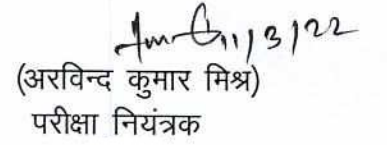 11/3/22
(अरविन्द कुमार मिश्र)
परीक्षा नियंत्रक